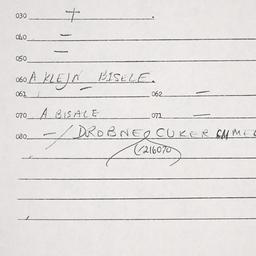 030 +
040 –
050 –
060 A KLEJN BISELE.
061 – 062 –
070 A BISALE 071 –
080 – / DROBNE CUKER
(216070